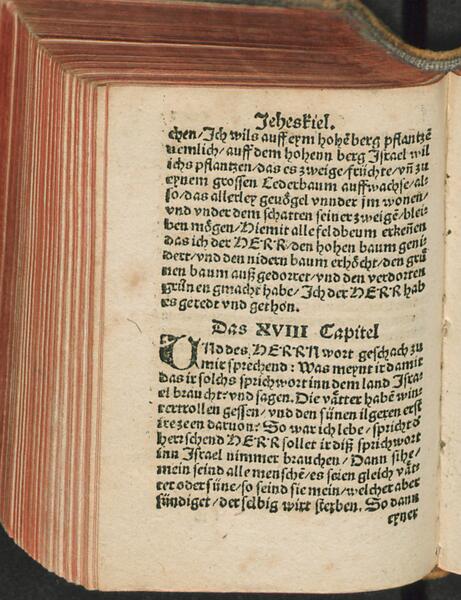 Jeheskiel.
chen/ Ich wils auff eym hohē berg pflantzē
nemlich/ auff dem hohenn berg Israel wil
ichs pflantzen/ das es zweige/ früchte/ vñ zu
eynem grossen Cederbaum auffwachse/ al-
so/ das allerley gevögel vnnder jm wonen/
vnd vnder dem schatten seiner zweigē/ blei-
ben mögen/ Hiemit alle feldbeum erkeñen
das ich der HERR/ den hohen baum geni-
dert/ vnd den nidern baum erhöcht/ den grü
nen baum auß gedorret/ vnd den verdorten
grünen gmacht habe/ Ich der HERR hab
es geredt vnd gethon.
Das XVIII Capitel
VNd des HERRN wort geschach zu
mir sprechend: Was meynt ir damit
das ir solchs sprichwort inn dem land Isra-
el braucht/ vnd sagen. Die vätter habē win-
tertrollen gessen/ vnd den sünen ilgeren erst
ire zeen daruon? So war ich lebe/ spricht d
herrschend HERR sollet ir diß sprichwort
inn Israel nimmer brauchen/ Dann sihe/
mein seind alle menschē/ es seien gleich vät-
ter oder süne/ so seind sie mein/ welcher aber
sündiget/ der selbig wirt sterben. So dann
eyner